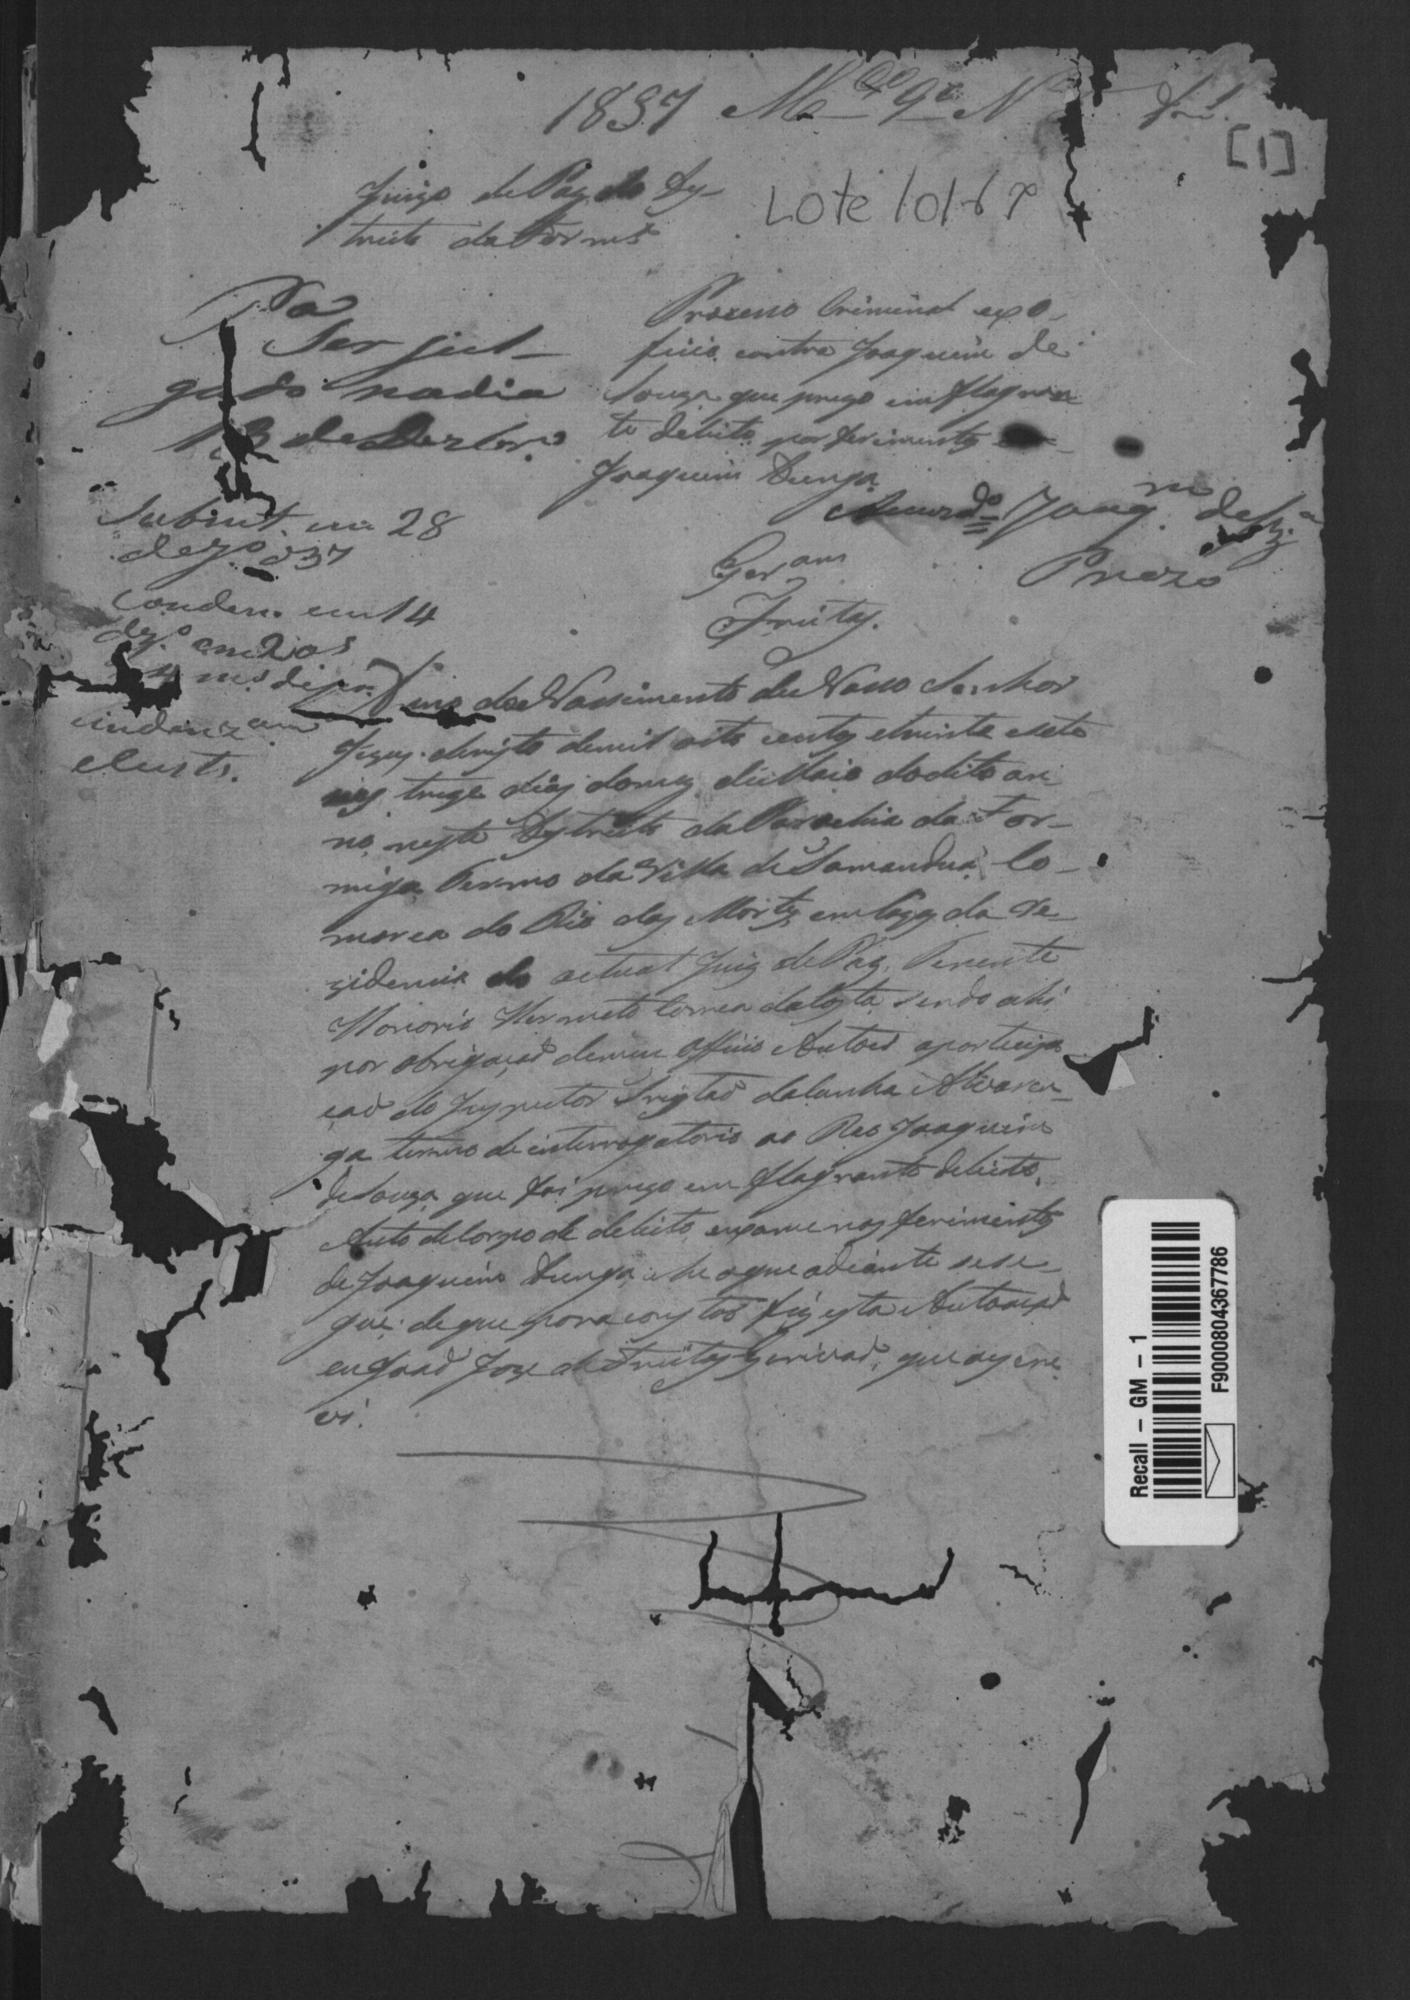 1837 M.ço 9º N
fl. 1
[1]
Juizo de Paz do Dys-
tricto da Form.ª
Lote 101-67
Pª
Ser jul-
gado nadia
13 de Dezbr.º
Processo Criminal exo-
ficio contra Joaquim de
Souza que prezo em flagran
te delicto por ferimentos
Joaquim Dunga
Joaq.m de Sz.ª
Prezo
Escr.am
Freitas.
em 28
dezº 837
Conden. em 14
dez.º em 2 os
4 ms de
indenz am
e custs.
Anno do Nascimento de Nosso Senhor
Jezus Christo demil oito centos etrinta esete
aos treze dias domez deMaio dodito an
no neste Dystricto da Parochia da For-
miga Termo da Villa de Tamanduá Co-
marca do Rio das Mortes em Cazas da re
zidencia do actual Juiz de Paz, Tenente
Honorio Hermeto Correa daCosta sendo ahi
por obrigação demeu Officio Autoei aparticipa
cao do Inspector Tristão daCunha Alvaren-
ga termo de interrogatorio ao Reo Joaquim
deSouza que foi prezo em flagrante delicto,
Auto deCorpo de delicto, exame nos ferimentos
de Joaquim Dunga, he oque adiante sese-
gue: deque para constar fiz esta Autoação
eu Joao Joze de Freitas Escrivão, que oescre
vi.
Recall – GM – 1
F9000804367786